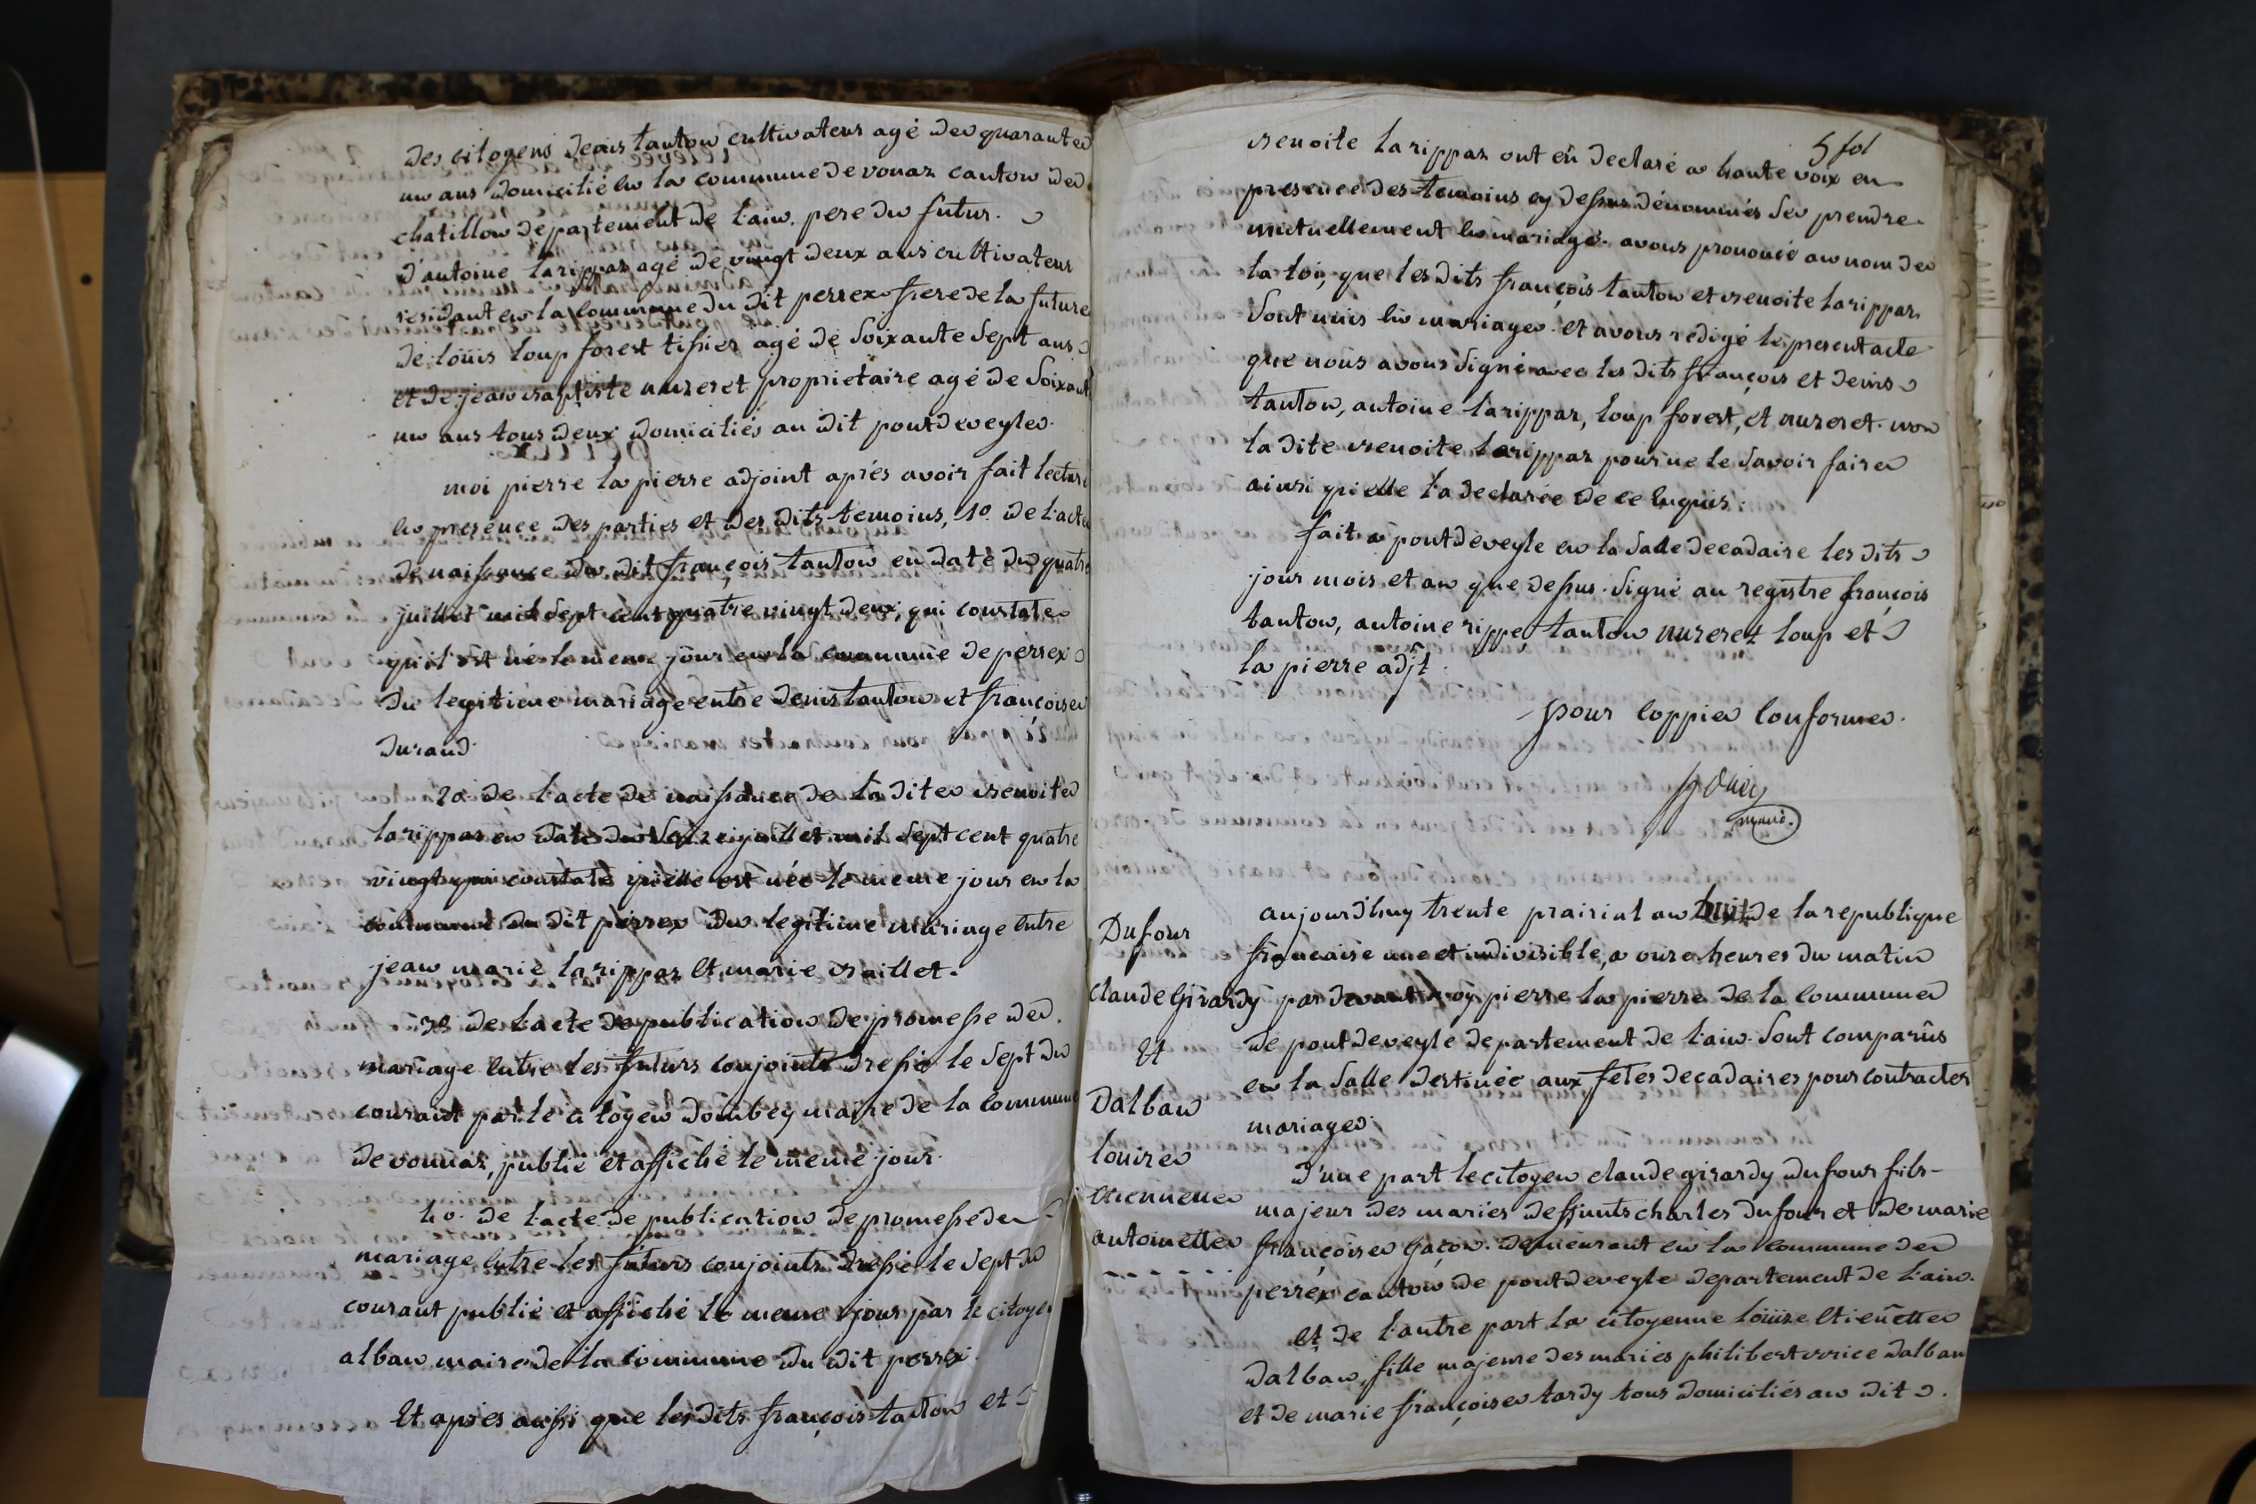 des citoyens denis tanton cultivateur agé de quarante
un ans domicilié en la commune de vonaz canton de
chatillon departement de l'ain. pere du futur.
d'antoine larippaz agé de vingt deux ans cultivateur
residant en la commune du dit perrex frere de la future
de loüis loup forest tissier agé de soixante sept ans
et de jean baptiste nuzeret proprietaire agé de soixante
un ans tous deux domiciliés au dit pontdeveyle.
moi pierre la pierre adjoint aprés avoir fait lecture
en presence des parties et des dits temoins, 1o. de l'acte
de naissance du dit françois tanton en date du quatre
juillet mil sept cent quatre vingt deux, qui constate
qu'il est né le meme jour en la commune de perrex
du legitime mariage entre denis tanton et françoise
durand.
2o de l'acte de naissance de la dite benoite
larippaz en date du seize juillet mil sept cent quatre
vingt qui constate qu'elle est née le meme jour en la
commune du dit perrex du legitime mariage entre
jean marie larippaz et marie braillet.
3o de l'acte de publication de promesse de
mariage entre les futurs conjoints dressé le sept du
courant par le citoyen dombey maire de la commune
de vonnaz, publié et affiché le meme jour.
4o. de l'acte de publication de promesse de
mariage entre les futurs conjoints dressé le sept du
courant publié et affiché le meme jour par le citoyen
alban maire de la commune du dit perrex.
et apres aussi que les dits françois tanton et
5 fol
benoite larippaz ont eû declaré a haute voix en
presence des temoins cy dessus dénommés de prendre
mutuellement en mariage. avons prononcé au nom de
la loi, que les dits françois tanton et benoite larippaz
sont unis en mariage. et avons redigé le present acte
que nous avons signé avec les dits françois et denis
tanton, antoine larippaz, loup forest, et nuzeret. non
la dite benoite larippaz pour ne le savoir faire
ainsi qu'elle l'a declarée de ce enquis.
fait a pontdeveyle en la salle decadaire les dits
jour mois et an que dessus. signé au registre françois
tanton, antoine rippe tanton nuzeret loup et
la pierre adjt.
pour coppie conforme.
Dufour
claude Girardy
et
Dalban
louize
etiennette
antoinette
aujourd'huy trente prairial an huit de la republique
françaisе une et indivisible, a onze heures du matin
par devant moy pierre la pierre de la commune
de pontdeveyle departement de l'ain. sont comparûs
en la salle destinée aux fetes decadaires pour contracter
mariage.
d'une part le citoyen claude girardy dufour fils
majeur des maries deffunts charles dufour et de marie
françoise gaçon. demeurant en la commune de
perrex canton de pontdeveyle departement de l'ain.
et de l'autre part la citoyenne loüize etieñette
dalban, fille majeure des maries philibert brice dalban
et de marie françoise tardy tous domiciliés au dit